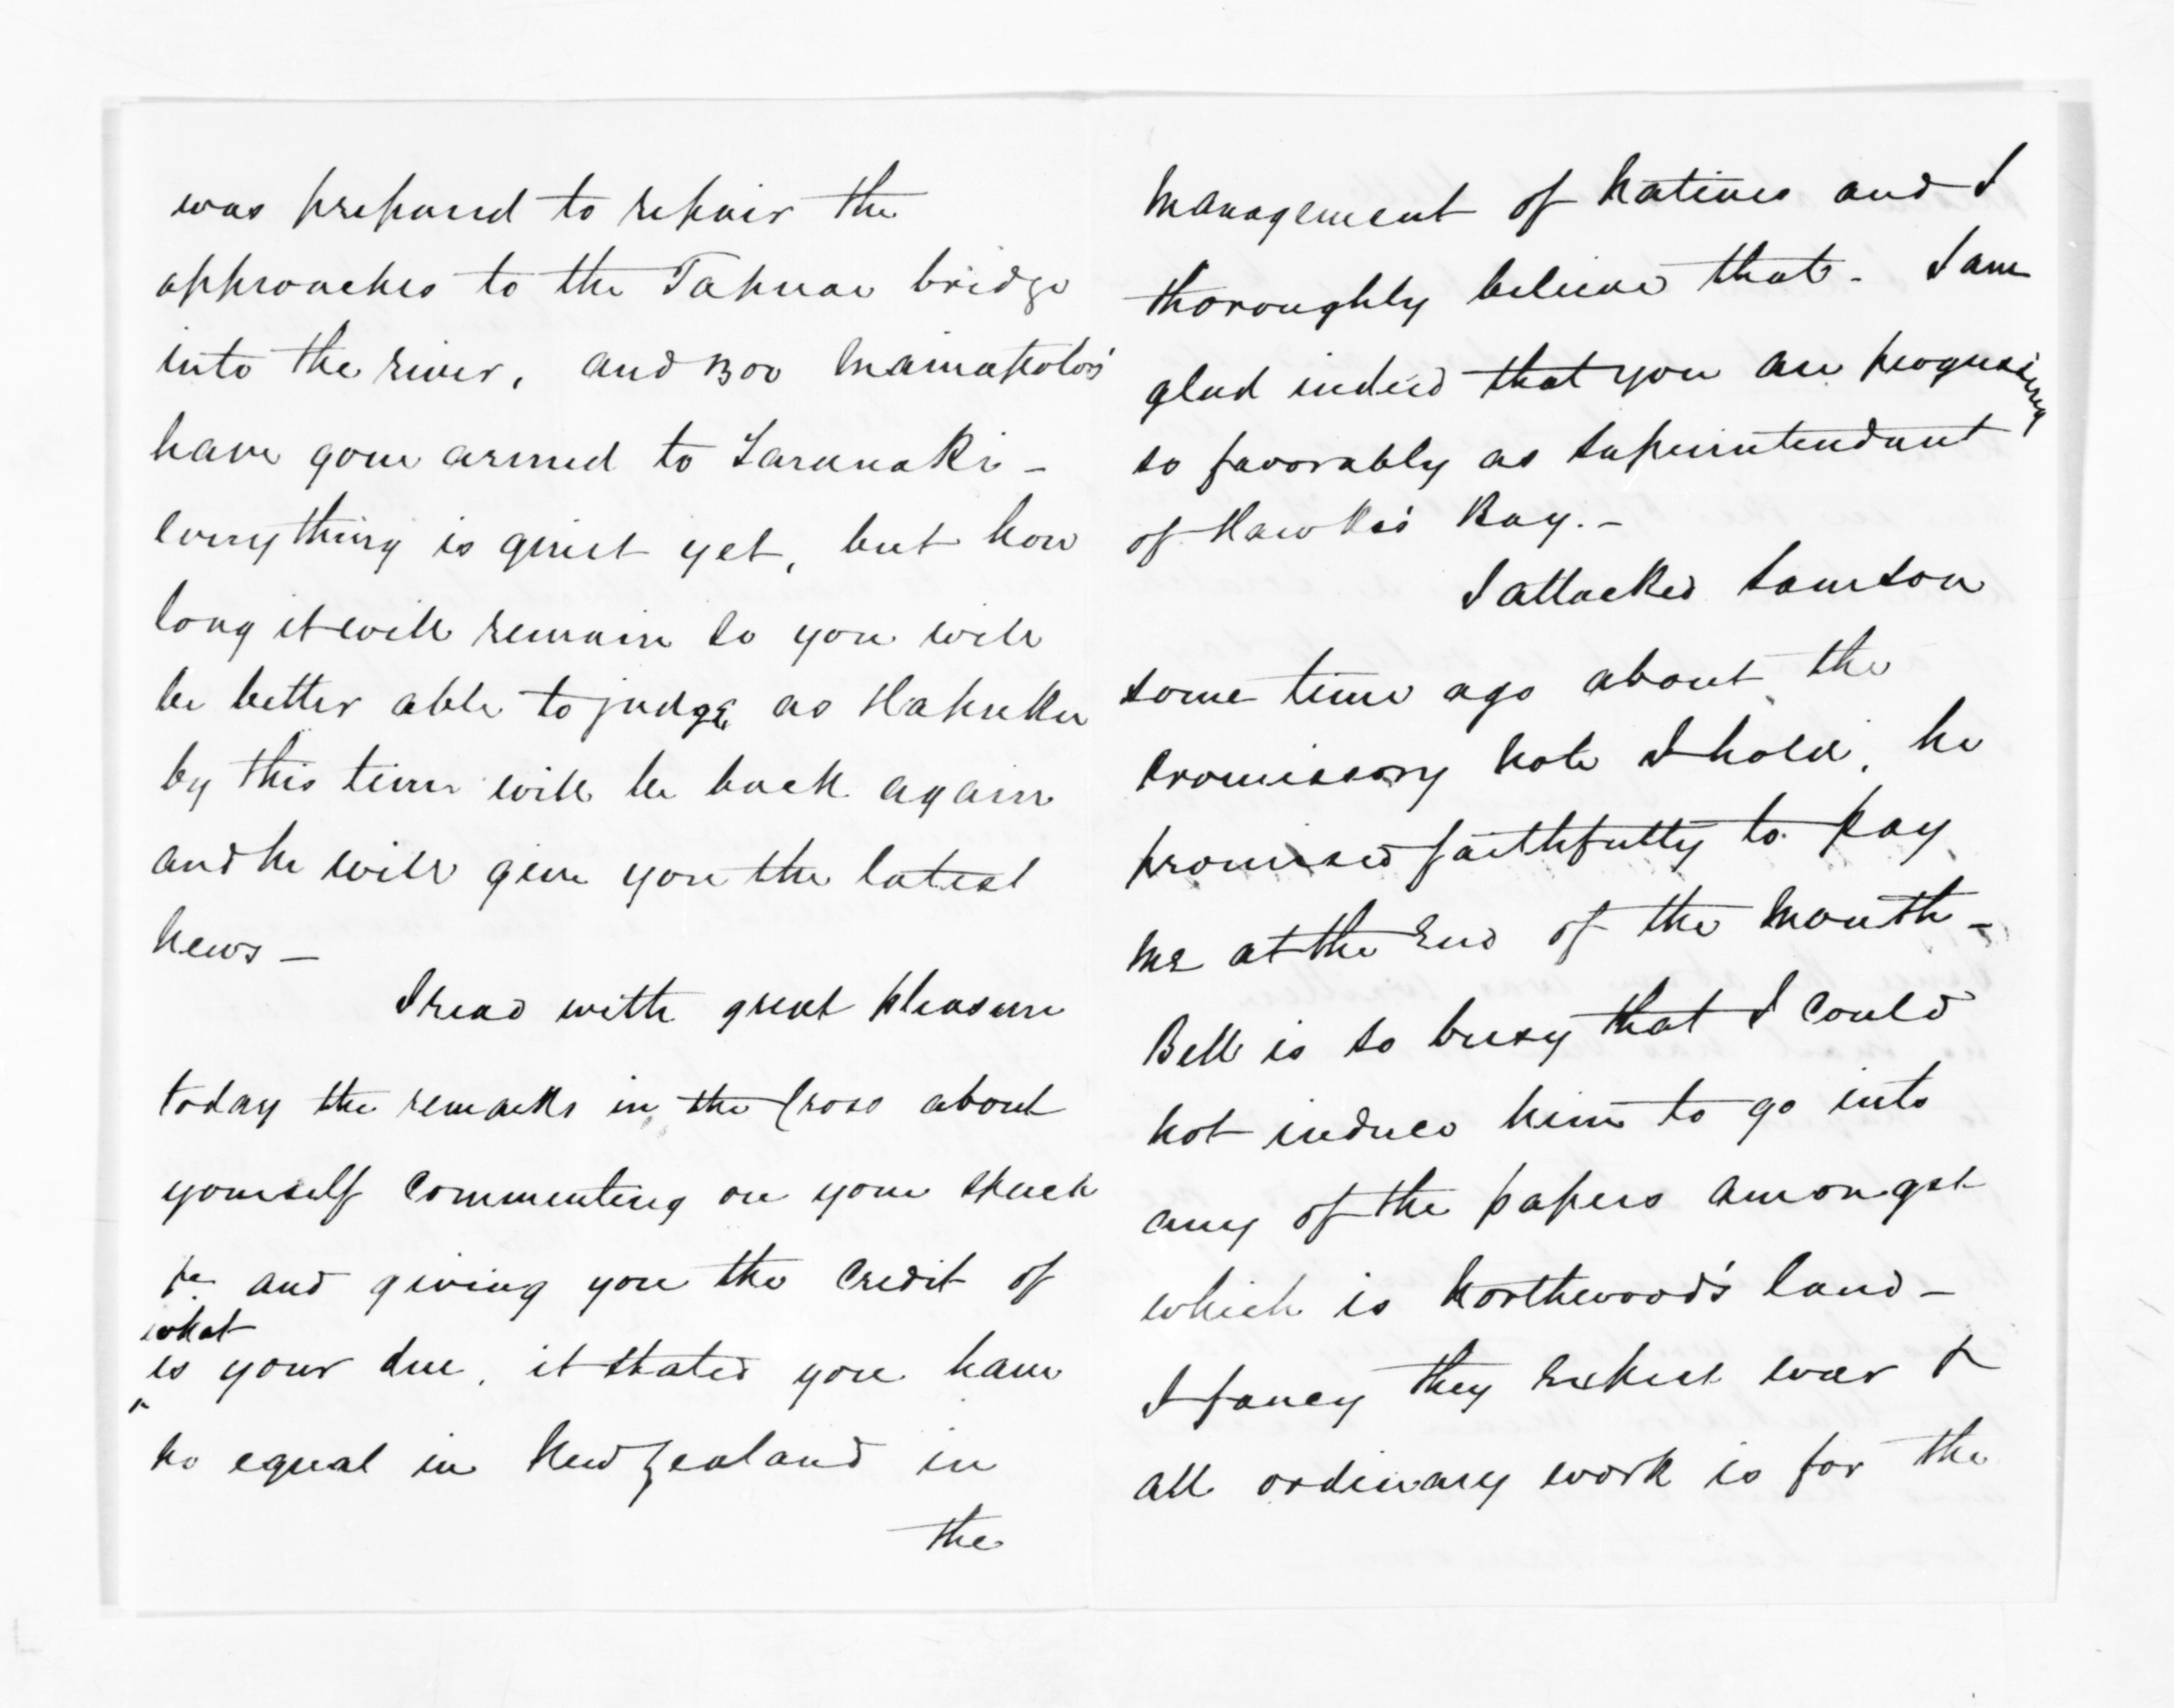 was prepared to repair the
approaches to the Tapuae bridge
into the river, and 1300 Maniapotos
have gone armed to Taranaki -
everything is quiet yet, but how
long it will remain so you will
be better able to judge as Hapuku
by this time will be back again
and he will give you the latest
news -
I read with great pleasure
today the remarks in the Cross about
yourself commenting on your speech
&c. and giving you the credit of
what
is your due, it stated you have
no equal in New Zealand in
the
management of Natives and I
thoroughly believe that - I am
glad indeed that you are progressing
so favorably as Superintendent
of Hawke's Bay. -
I attacked Samson
some time ago about the
promissory note I hold, he
promised faithfully to pay
me at the end of the month -
Bell is so busy that I could
not induce him to go into
any of the papers amongst
which is Northwood's land -
I fancy they expect war &
all ordinary work is for the